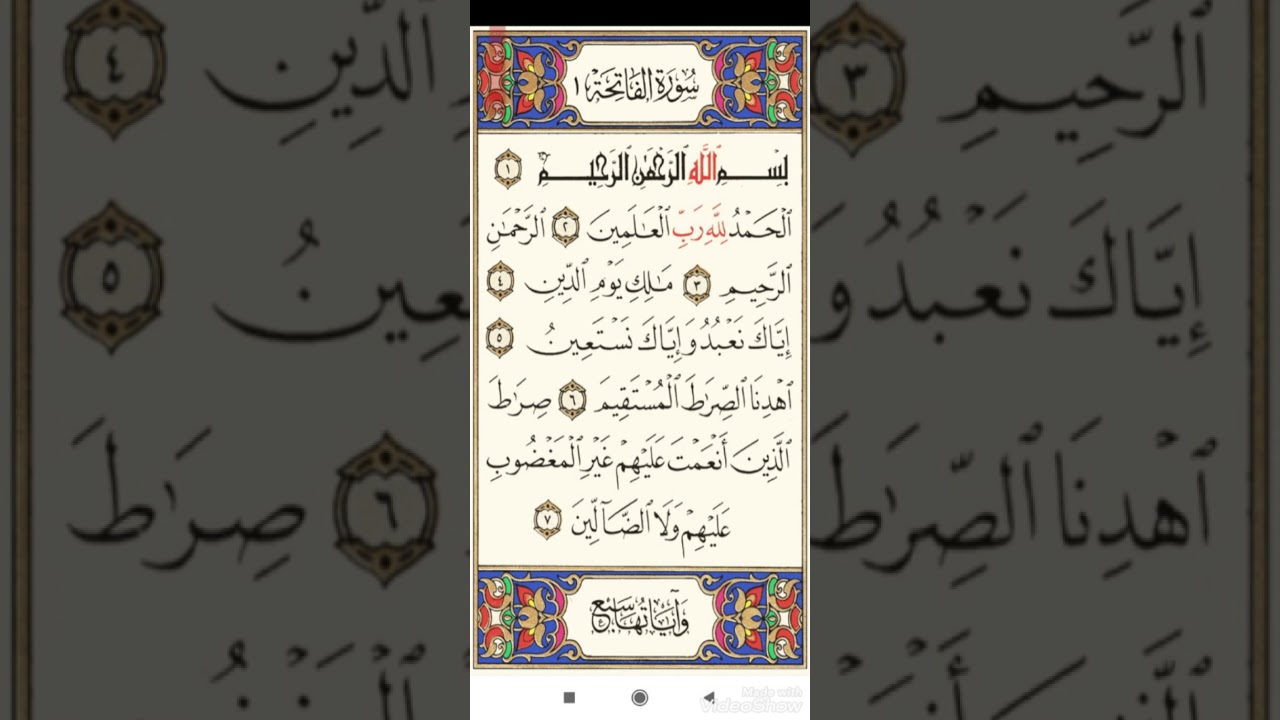 سُورَةُ الْفَاتِحَةِ ١
بِسْمِ ٱللَّهِ ٱلرَّحْمَٰنِ ٱلرَّحِيمِ ١
ٱلْحَمْدُ لِلَّهِ رَبِّ ٱلْعَٰلَمِينَ ٢ ٱلرَّحْمَٰنِ
ٱلرَّحِيمِ ٣ مَٰلِكِ يَوْمِ ٱلدِّينِ ٤
إِيَّاكَ نَعْبُدُ وَإِيَّاكَ نَسْتَعِينُ ٥
ٱهْدِنَا ٱلصِّرَٰطَ ٱلْمُسْتَقِيمَ ٦ صِرَٰطَ
ٱلَّذِينَ أَنْعَمْتَ عَلَيْهِمْ غَيْرِ ٱلْمَغْضُوبِ
عَلَيْهِمْ وَلَا ٱلضَّآلِّينَ ٧
وَآيَاتُهَا سَبْعٌ
Made with
VideoShow